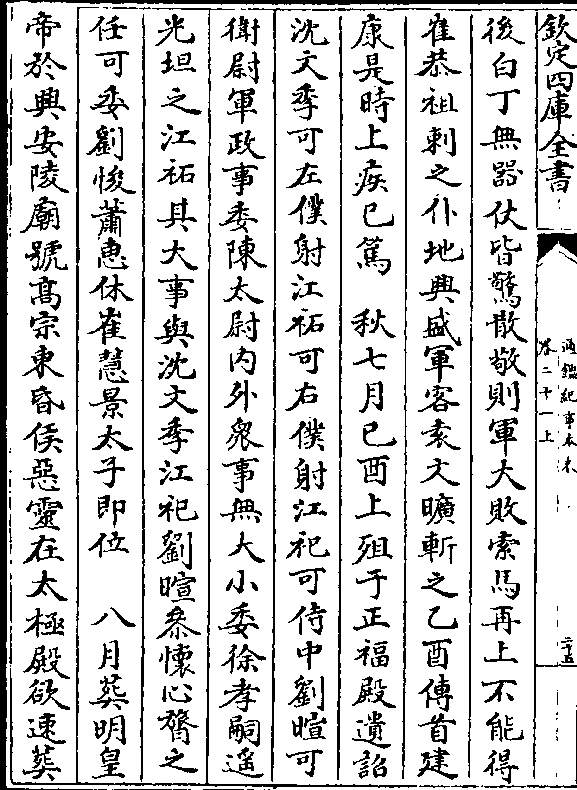 欽定四庫全書
通鑑紀事本末
卷二十一上
二十五
後白丁無器仗皆驚散敬則軍大敗索馬再上不能得
崔恭祖刺之仆地興盛軍客袁文曠斬之乙酉傳首建
康是時上疾已篤　秋七月己酉上殂于正福殿遺詔
沈文季可左僕射江祏可右僕射江祀可侍中劉暄可
衛尉軍政事委陳太尉内外衆事無大小委徐孝嗣遥
光坦之江祏其大事與沈文季江祀劉暄叅懷心膂之
任可委劉悛蕭惠休崔慧景太子即位　八月葬明皇
帝於興安陵廟號髙宗東昏侯惡靈在太極殿欲速葬